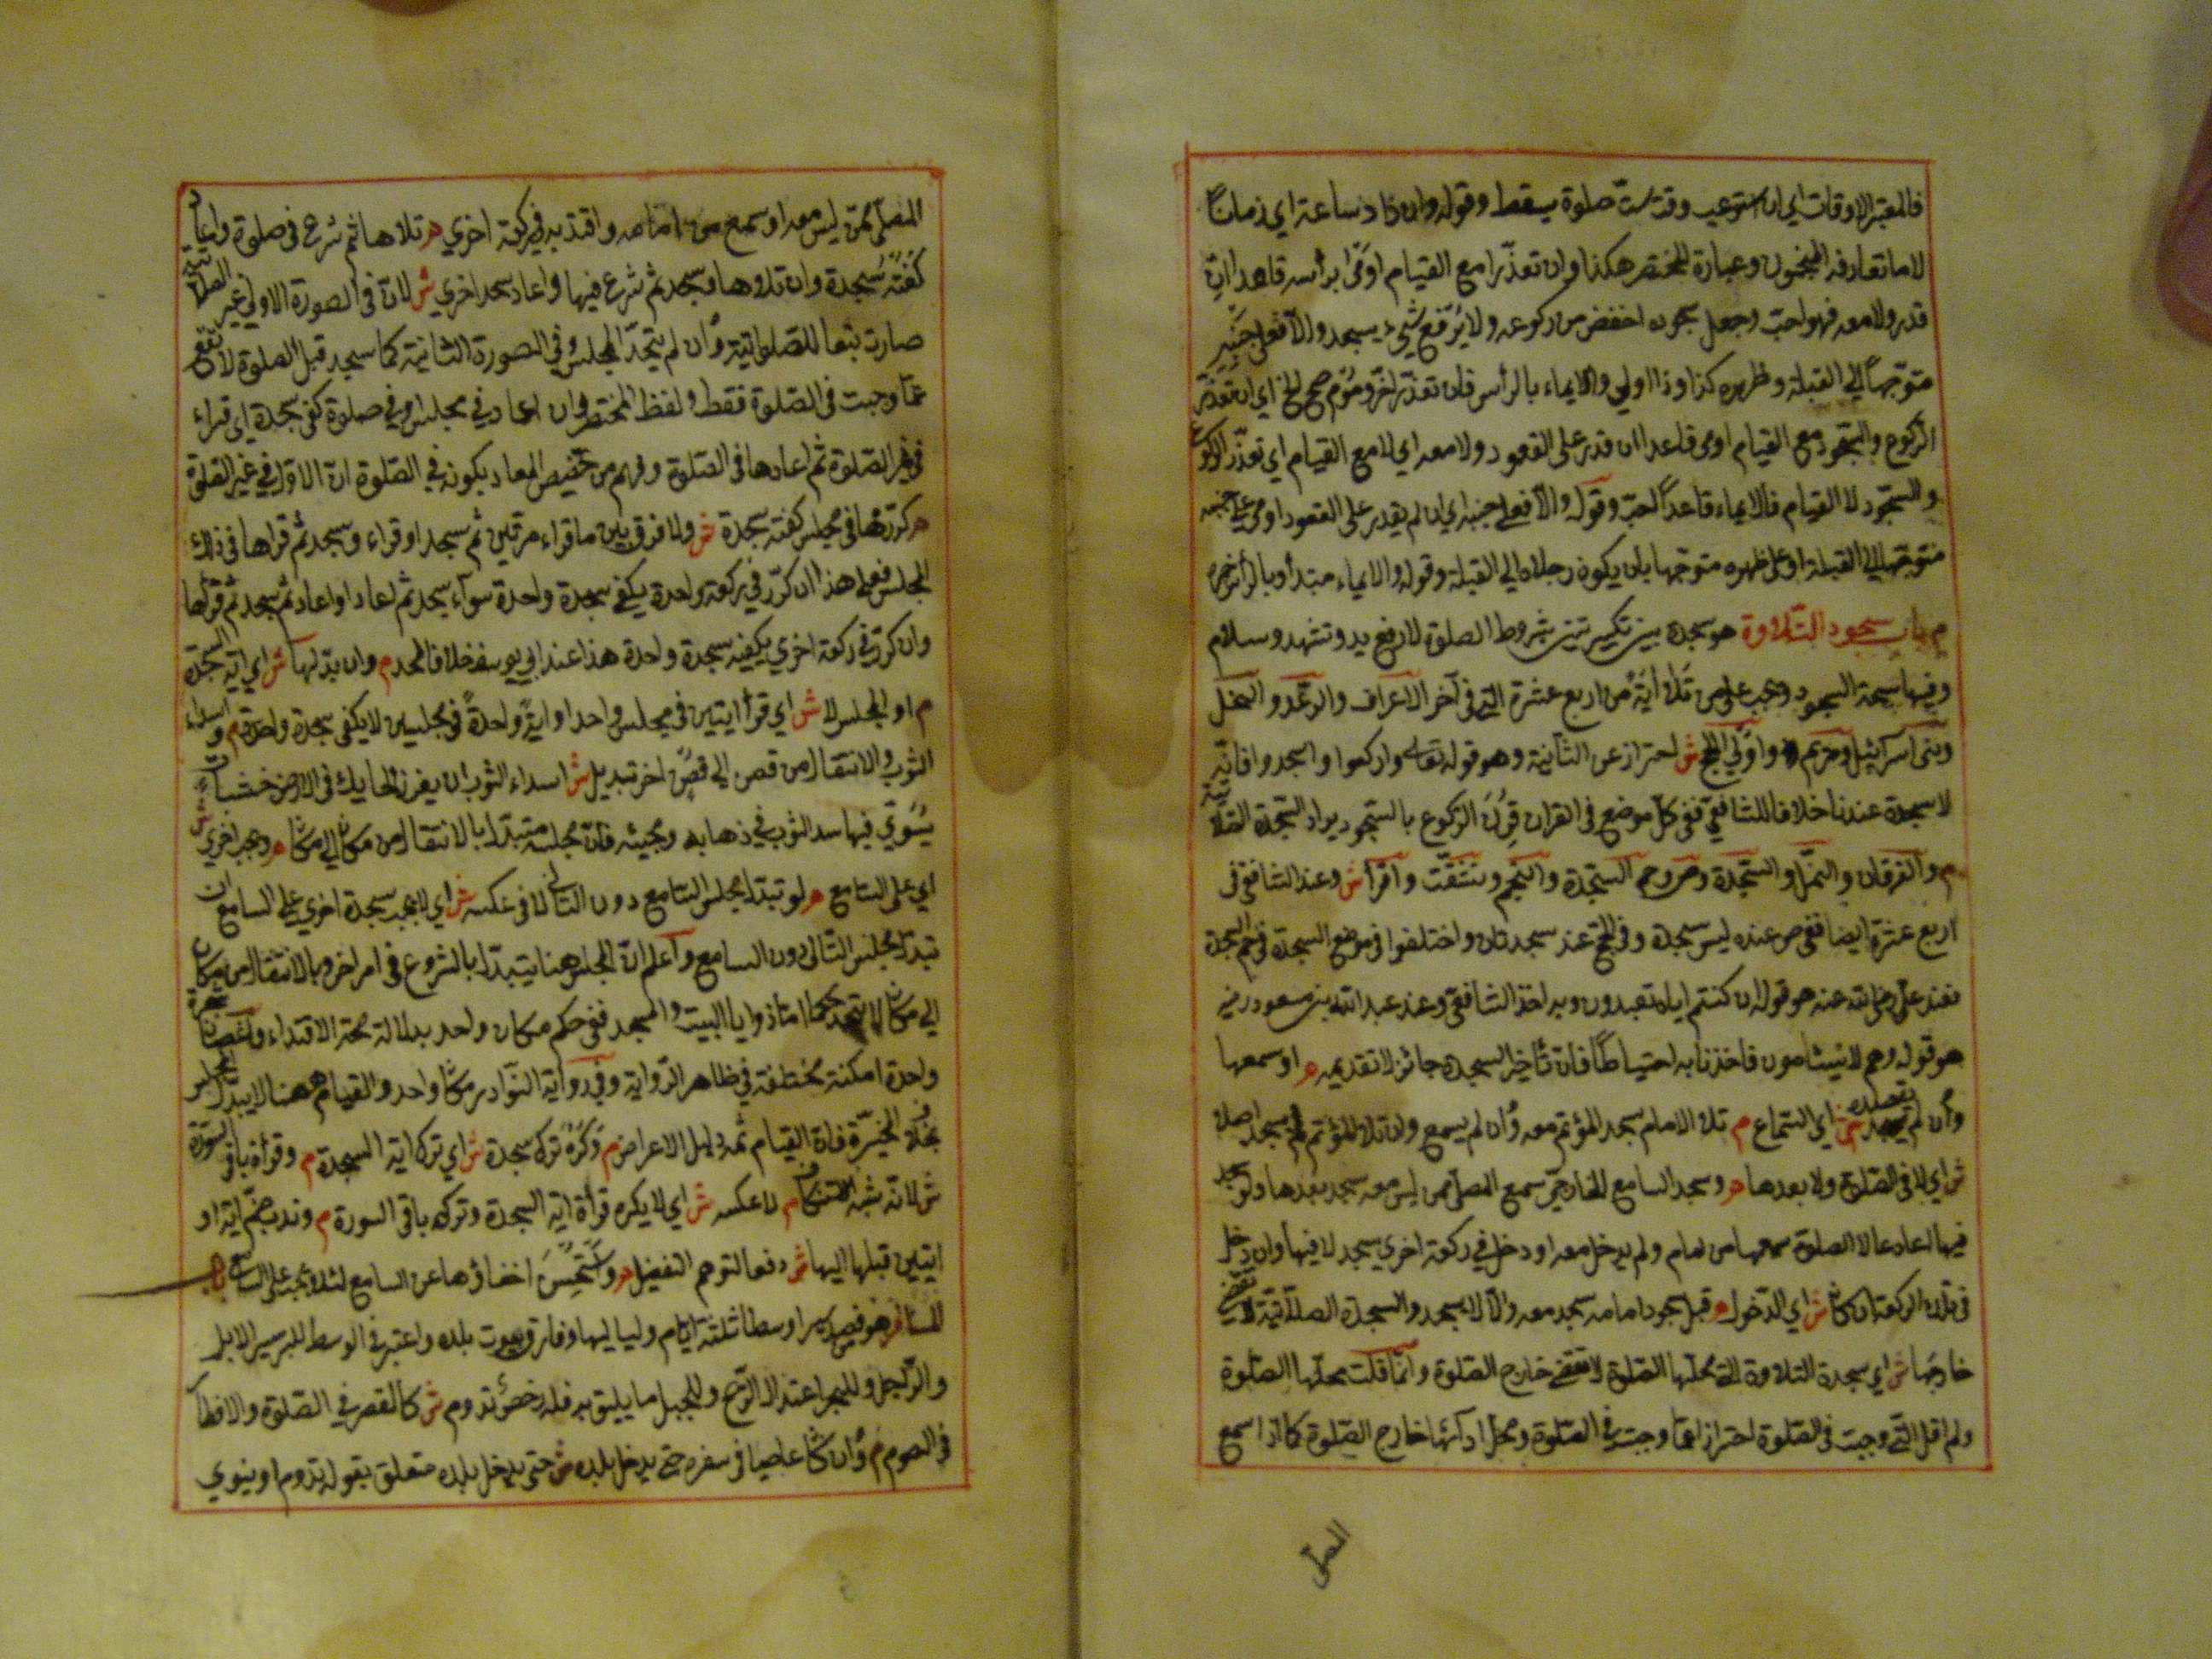 فالمعتبر الاوقات اي ان استوعب وقت ست صلوة يسقط وقوله وان زاد ساعة اي زمانا
لا ما تعارفه المنجمون وعبارة المختصر هكذا وان تعذرا مع القيام اومى برأسه قاعدا ان
قدر ولا معه فهو احب وجعل سجوده اخفض من ركوعه ولا يرفع شيء يسجد والا فعلى جنبه
متوجها الى القبلة وظهره كذا وذا اولى والايماء بالرأس فان تعذر اخر ومؤم صح الخ اي ان تعذر
الركوع والسجود مع القيام اومى قاعدا ان قدر على القعود ولا معه اي لا مع القيام اي تعذر الركوع
والسجود لا القيام فالايماء قاعدا احب وقوله والا فعلى جنبه اي ان لم يقدر على القعود اومى على جنبه
متوجها الى القبلة او على ظهره متوجها بان يكون رجلاه الى القبلة وقوله والايماء مبتدأ وبالرأس خبره
م باب سجود التلاوة هو سجدة بين تكبيرتين بشروط الصلوة لا رفع يد وتشهد وسلام
وفيها سبحة السجود وتجب على من تلا اية من اربع عشرة التي في آخر الاعراف والرعد والنحل
وبنى اسرائيل ومريم واولى الحج ش احتراز عن الثانية وهو قوله تعالى واركعوا واسجدوا فانه
لا سجدة عندنا خلافا للشافعي ففي كل موضع في القران قرن الركوع بالسجود يراد السجدة الصلاتية
م والفرقان والنمل والسجدة وص وحم السجدة والنجم وانشقت واقرأ ش وعند الشافعي في
اربع عشرة ايضا ففي ص عنده ليس سجدة وفي الحج عنده سجدتان واختلفوا في موضع السجدة في حم السجدة
فعند علي رضي الله عنه هو قوله ان كنتم اياه تعبدون وبه اخذ الشافعي وعند عبد الله بن مسعود رضي
هو قوله وهم لا يسئامون فاخذنا به احتياطا فان تأخير السجدة جائز لا تقديمه م او سمعها
وان لم يقصده ش اي السماع م تلا الامام سجد المؤتم معه وان لم يسمع وان تلا المؤتم لم يسجد اصلا
ش اي لا في الصلوة ولا بعدها م وسجد السامع الخارجي سمع المصلي ممن ليس معه سجد بعدها ولو سجد
فيها اعادها لا الصلوة سمعها من امام ولم يدخل معه او دخل في ركعة اخرى سجد لا فيها وان دخل
في تلك الركعة ان كان ش اي الدخول م قبل سجود امامه سجد معه والا لا يسجد والسجدة الصلاتية لا تقضى
خارجها ش اي سجدة التلاوة التي محلها الصلوة لا تقضى خارج الصلوة وانما قلت محلها الصلوة
ولم اقل التي وجبت في الصلوة احترازا عما وجبت في الصلوة ومحل ادائها خارج الصلوة كما اذا سمع
المصلي
المصلي ممن ليس معه او سمع من امامه واقتدى به في ركعة اخرى م تلاها ثم شرع في صلوة واعاد
كفته سجدة وان تلاها وسجد ثم شرع فيها واعاد سجد اخرى ش لان في الصورة الاولى غير الصلاتية
صارت تبعا للصلواتية وان لم يتحد المجلس وفي الصورة الثانية كما سجد قبل الصلوة لا تقع
عما وجبت في الصلوة فقط ولفظ المختصر وان اعاد في مجلس او في صلوة كفى سجدة اي قراء
في غير الصلوة ثم اعادها في الصلوة وفهم من تخصيص المعاد بكونه في الصلوة ان الاول في غير الصلوة
م كررها في مجلس كفته سجدة ش ولا فرق بين ما قراء مرتين ثم سجد او قراء وسجد ثم قراها في ذلك
المجلس فعلى هذا ان كرر في ركعة واحدة يكفي سجدة واحدة سوآء سجد ثم اعاد او اعاد ثم سجد ثم قراها
وان كرر في ركعة اخرى يكفيه سجدة واحدة هذا عند ابي يوسف خلافا لمحمد م وان بدلها ش اي اية السجدة
م او المجلس لا ش اي قرأ ايتين في مجلس واحد او اية واحدة في مجلسين لا يكفي سجدة واحدة م واسداء
الثوب والانتقال من غصن الى غصن اخر تبديل ش اسداء الثوب ان يغرز الحايك في الارض خشبات
يسوي فيها سدا الثوب في ذهابه ومجيئه فان مجلسه متبدل بالانتقال من مكان الى مكان م وتجب اخرى ش
اي على السامع م لو تبدل مجلس السامع دون التالي لا في عكسه ش اي لا يجب سجدة اخرى على السامع ان
تبدل مجلس التالي دون السامع واعلم ان المجلس هنا يتبدل بالشروع في امر اخر وبالانتقال من مكان
الى مكان لا يتحد حكما اما زوايا البيت والمسجد ففي حكم مكان واحد بدلالة صحة الاقتداء واغصان شجرة
واحدة امكنة مختلفة في ظاهر الرواية وفي رواية النوادر مكان واحد والقيام ههنا لا يبدل المجلس
بخلاف المخيرة فان القيام ثمه دليل الاعراض م وكره ترك سجدة ش اي ترك اية السجدة م وقرأة باقي السورة
ش لانه يشبه الاستنكاف م لا عكسه ش اي لا يكره قرأة اية السجدة وترك باقي السورة م وندب ضم اية او
ايتين قبلها اليها ش دفعا لتوهم التفضيل م واستحسن اخفاؤها عن السامع لئلا تجب على السامع باب
المسافر هو من قصد سيرا وسطا ثلثة ايام ولياليها وفارق بيوت بلده واعتبر في الوسط للبر سير الابل
والرجل وللبحر اعتدال الريح وللجبل ما يليق به فله رخص تدوم ش كالقصر في الصلوة والافطار
في الصوم م وان كان عاصيا في سفره حتى يدخل بلده ش حتى يدخل بلده متعلق بقوله تدوم او ينوي